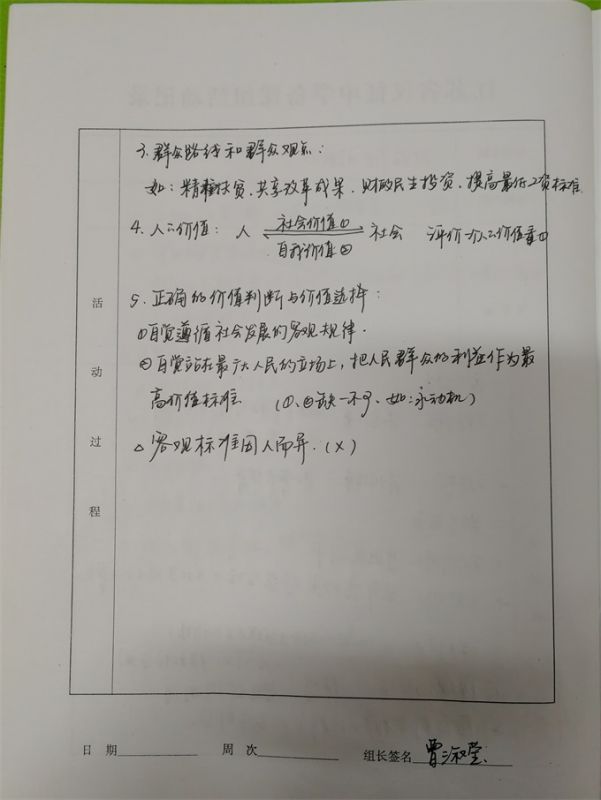 3、群众路线和群众观点：
如：精准扶贫、共享改革成果、财政民生投资、提高最低工资标准
4、人的价值：人 社会价值① 社会 评价一个人价值看①
自我价值②
5、正确的价值判断与价值选择：
①自觉遵循社会发展的客观规律.
②自觉站在最广大人民的立场上，把人民群众的利益作为最
高价值标准 （①、②缺一不可、如：永动机）
△客观标准因人而异.（×）
活
动
过
程
日 期 周 次 组长签名 曹淑莹